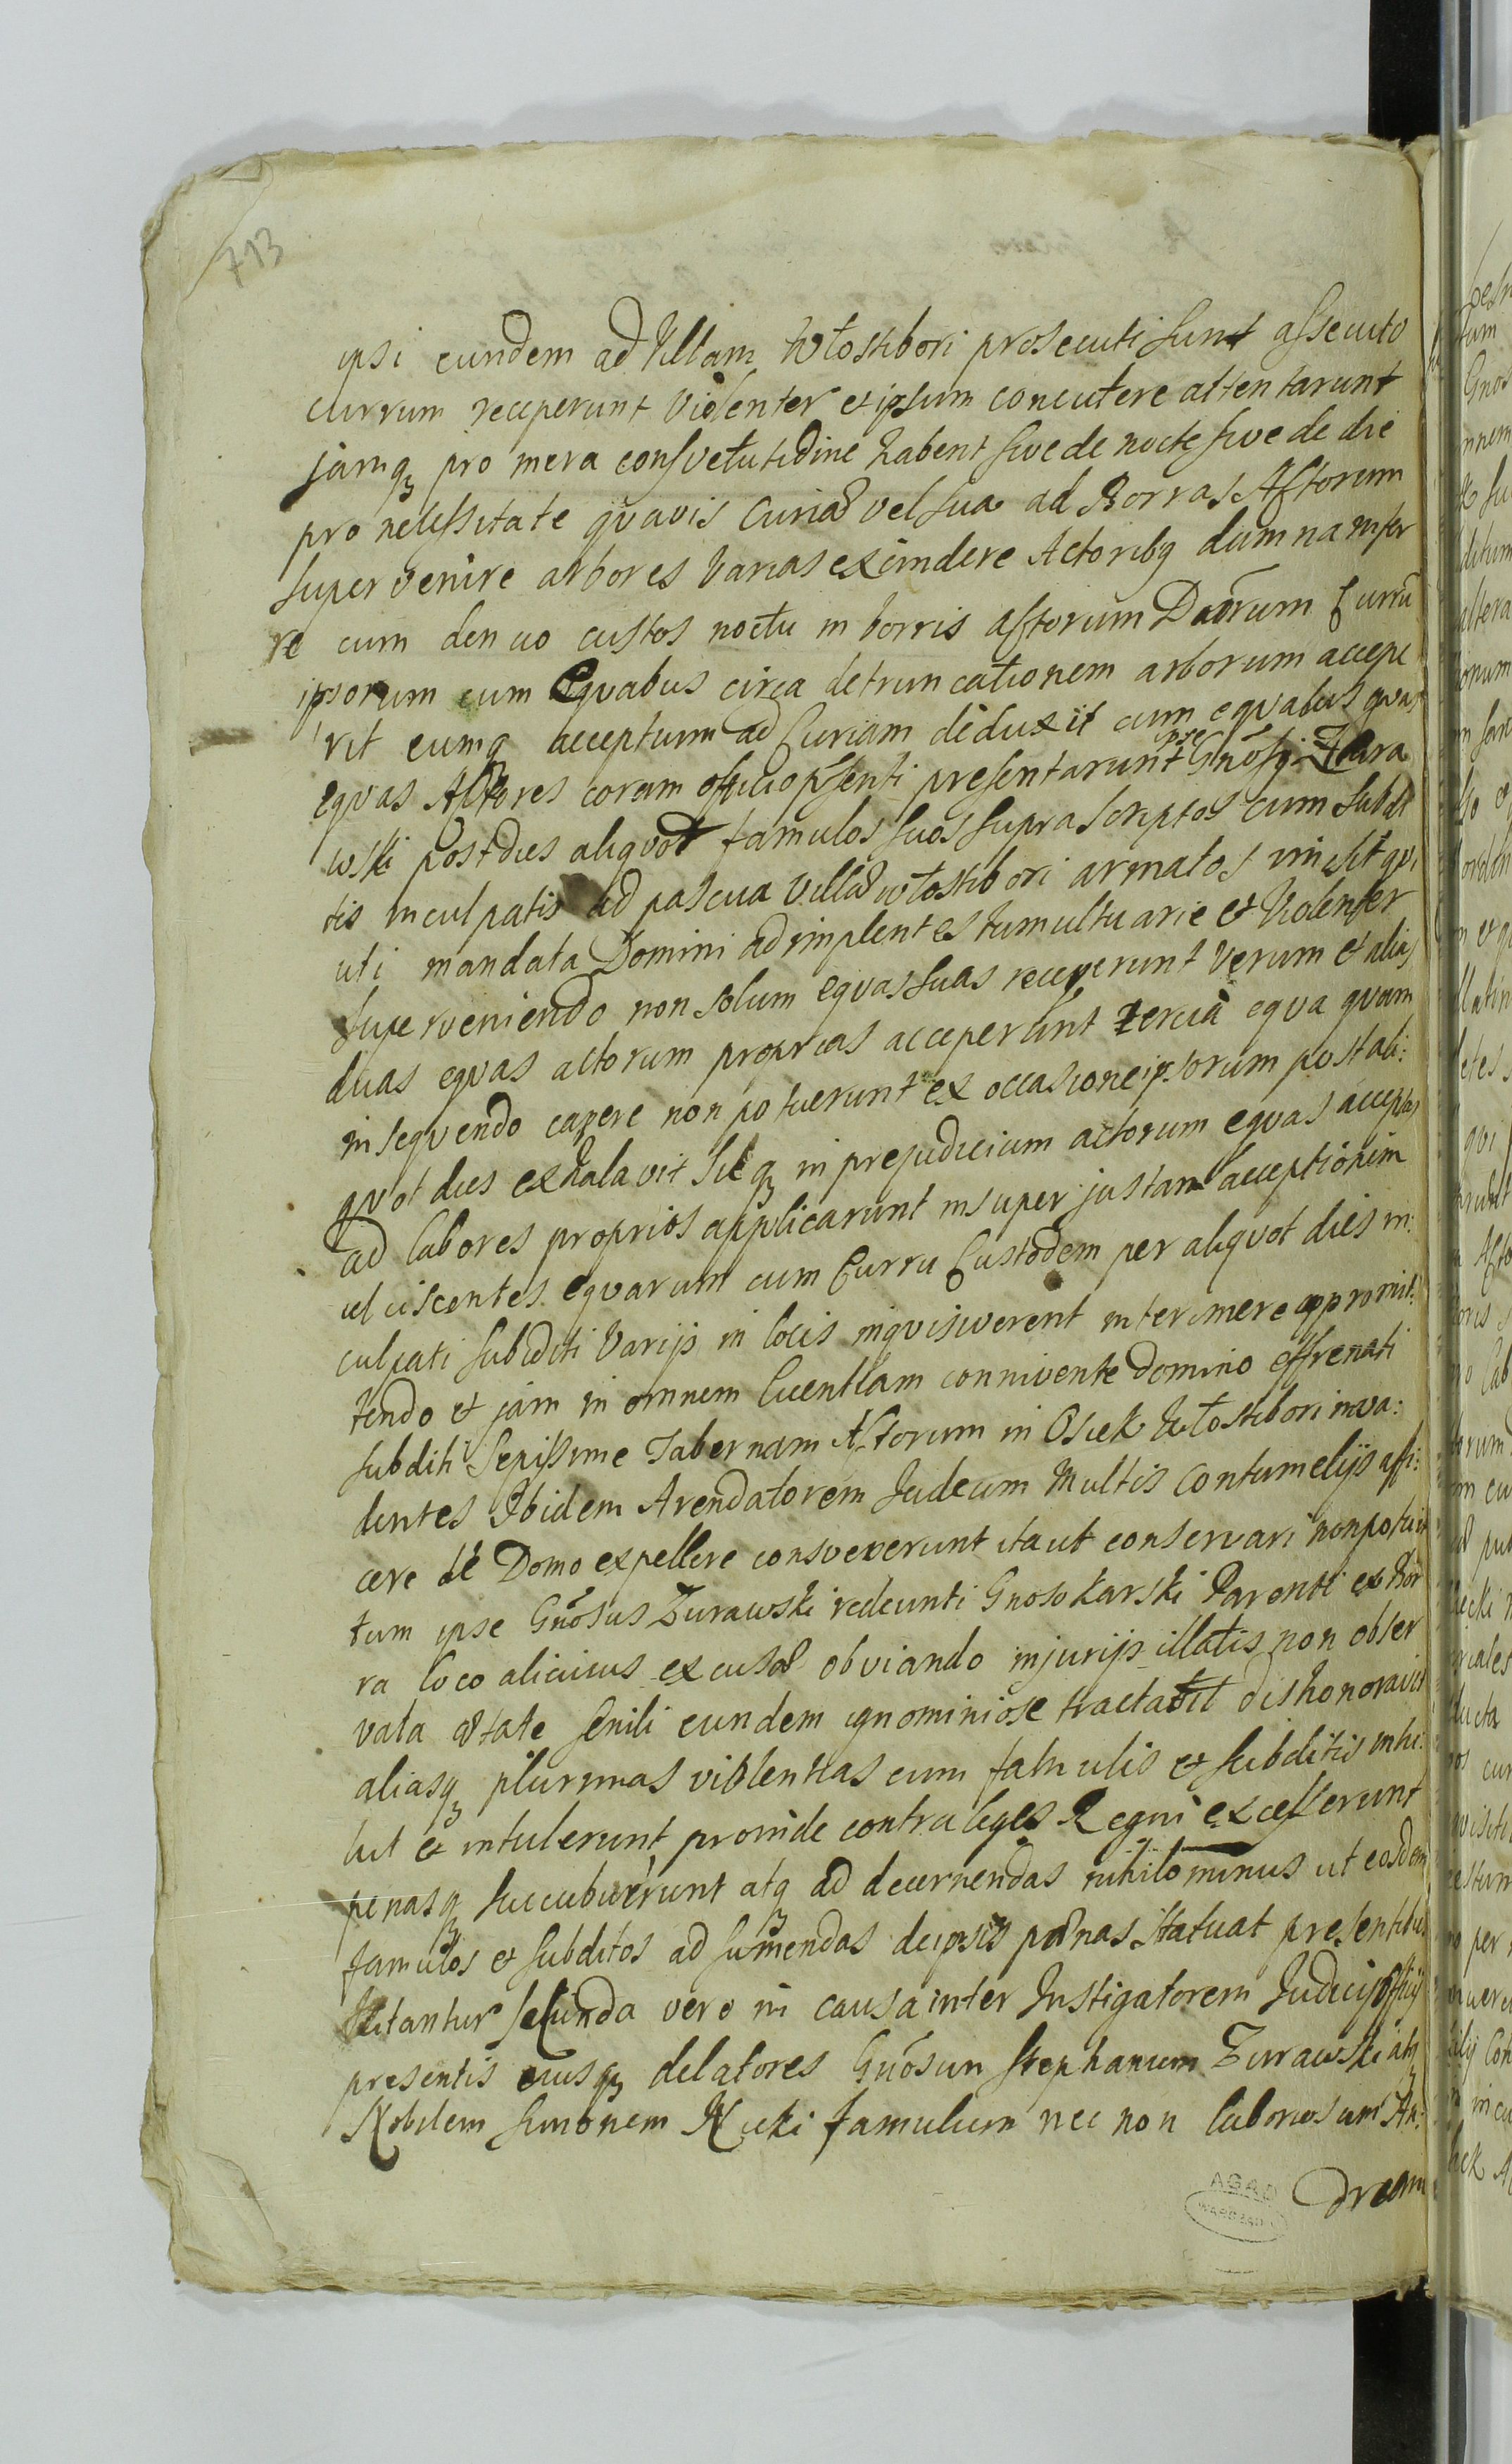 713
ipsi eundem ad Villam Włostibori prosecuti sunt assecuto
currum receperunt Violenter et ipsum concutere attentarunt
jamq pro mera consvetutidine habent sive de nocte sive de die
pro necessitate qvavis Curiæ vel sua ad Borras Actorum
supervenire arbores Varias excindere Actoribq damna infer
re cum denuo custos noctu in borris actorum Dnorum Currũ
ipsorum cum Eqvabus circa detruncationem arborum accepe
rit eumq acceptum ad Curiam deduxit cum eqvabus qvas
eqvas Actores coram officio pñsenti presentarunt ipse Gnosg Zura
wski post dies aliqvot famulos suos supra scriptos cum subdi
tis inculpatis ad pascua Villæ włostibori armatos misit qvi
uti mandata Domini adimplentes tumultuarie et Violenter
superveniendo non solum eqvas suas receperunt Verum et alias
duas eqvas actorum proprias acceperunt tercia eqva qvam
inseqvendo capere non potuerunt ex occasione ipsorum post ali:
qvot dies exhalavit sicq in prejudicium actorum eqvas acceptas
ad labores proprios applicarunt insuper justam acceptionem
ulciscentes eqvarum cum Curru Custodem per aliqvot dies in:
culpati subditi Varijs in locis inqvisiverent interimere appromit:
tendo et jam in omnem licentiam connivente Domino effrenati
subditi Sepissime Tabernam Actorum in Osiek Włostibori inva:
dentes Ibidem Arendatorem Judeum Multis Contumelijs affi:
cere de Domo expellere consveverunt ita ut conservari non potuit
tum ipse Gnosus Zurawski redeunti Gnoso Karski Parenti ex Bor
ra loco alicuius excusæ obviando injurijs illatis non obser
vata ætate senili eundem ignominiose tractavit dishonoravit
aliasq plurimas violentias cum famulis et subditis intu:
lit et intulerunt proinde contra leges Regni excesserunt
penasq succubuerunt atq ad decernendas nihilominus ut eosdem
famulos et subditos ad sumendas de ipsis pænas statuat presentibus
citantur Secunda vero in causa inter Instigatorem Judicij Officij
presentis eiusq delatores Gnosun Stephanum Zurawski atq
Nobilem Simonem Kucki famulum nec non laboriosum An:
dream
AGAD
WARSZAWA